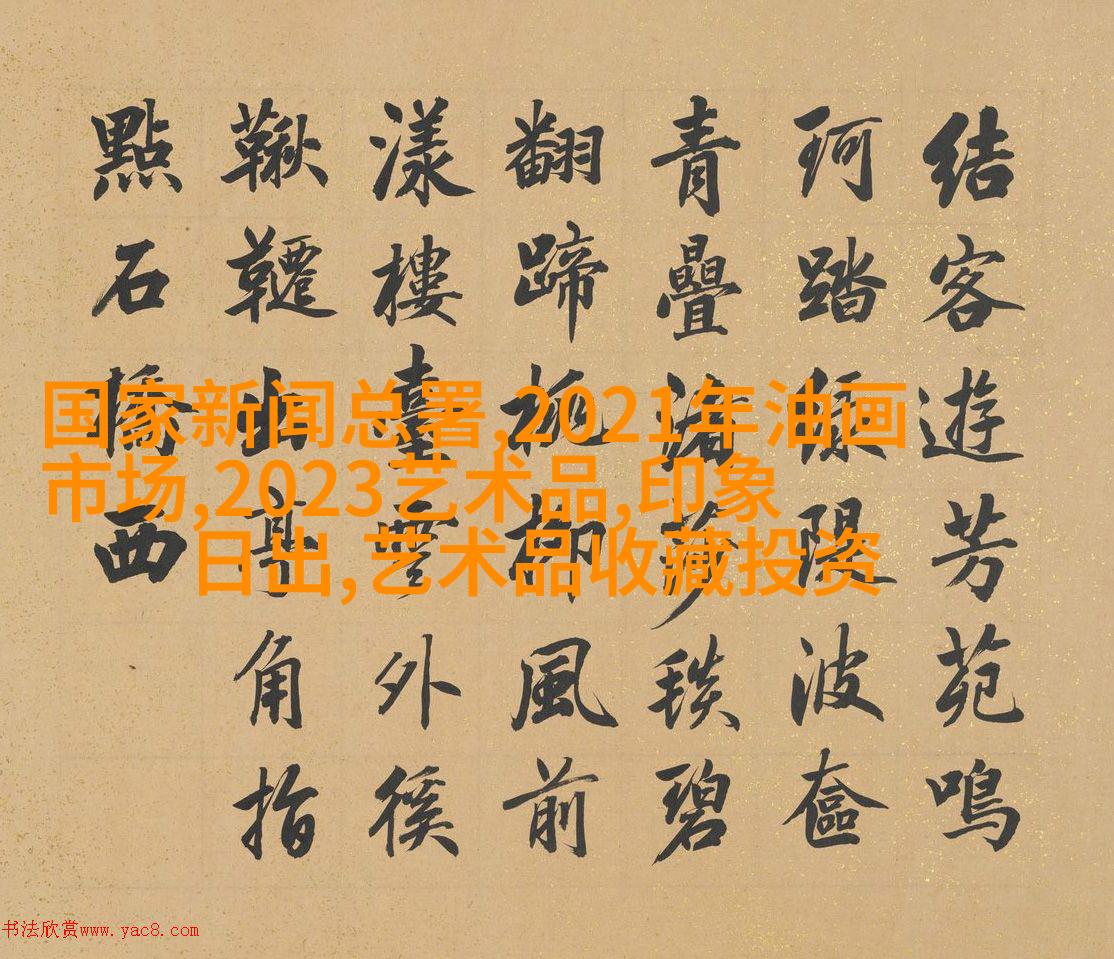 結客遊芳苑鳴
珂踏綠隄波奩
青疊渚莎毯碧
翻蹄桃柳風前
漾樓臺外徯
鞦韆出亭角指
點石橋西
国家新闻总署,2021年油画
市场,2023艺术品,印象
日出,艺术品收藏投资
书法欣赏www.yac8.com